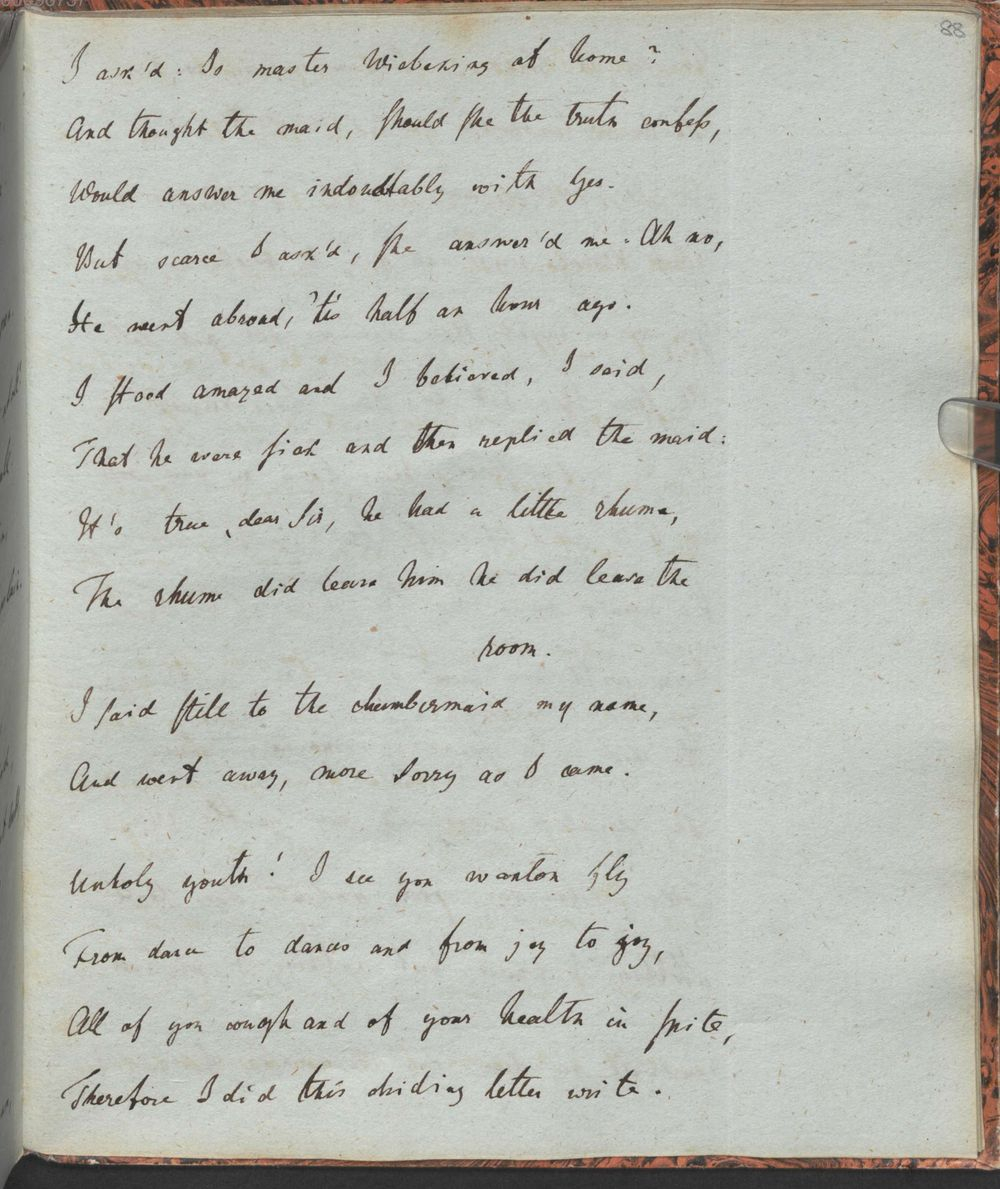 88
I ask'd: Is master Wiebeking at home?
And thought the maid, should she the truth confess,
Would answer me indoubtably with yes.
But scarce I ask'd, she answer'd me: Ah no,
He went abroad, 'tis half an hour ago.
I stood amazed and I believed, I said,
That he were sick and then replied the maid:
It's true, dear Sir, he had a little rhume,
The rhume did leave him he did leave the
room.
I said still to the chambermaid my name,
And went away, more sorry as I came.
Unholy youth! I see you wanton fly
From dance to dances and from joy to joy,
All of you cough and of your health in spite,
Therefore I did this chiding letter write.